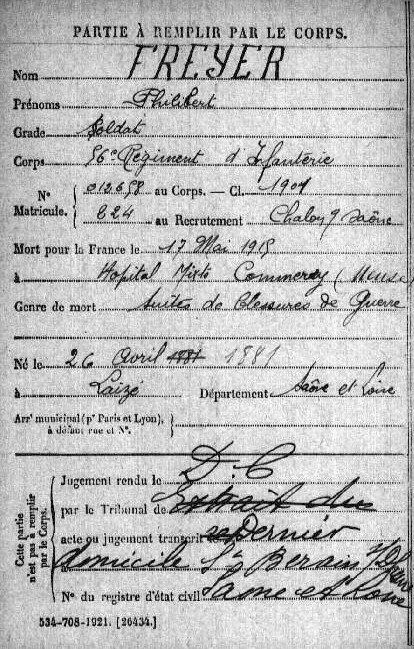 PARTIE À REMPLIR PAR LE CORPS.
Nom FREYER
Prénoms Philibert
Grade Soldat
Corps 56e Régiment d'Infanterie
N° Matricule. { 012658 au Corps. — Cl. 1901
824 au Recrutement Chalon s/ Saône
Mort pour la France le 17 Mai 1915
à Hopital Mixte Commercy (Meuse)
Genre de mort Suites de Blessures de Guerre
Né le 26 Avril 1881 1881
à Laizé Département Saône et Loire
Arrt municipal (pr Paris et Lyon),
à défaut rue et N°.
Cette partie n'est pas à remplir par le Corps.
Jugement rendu le D C
par le Tribunal de Extrait du
acte ou jugement transcrit le Dernier
à domicile St Berain
N° du registre d'état civil Saône et Loire
534-708-1921. [26434.]